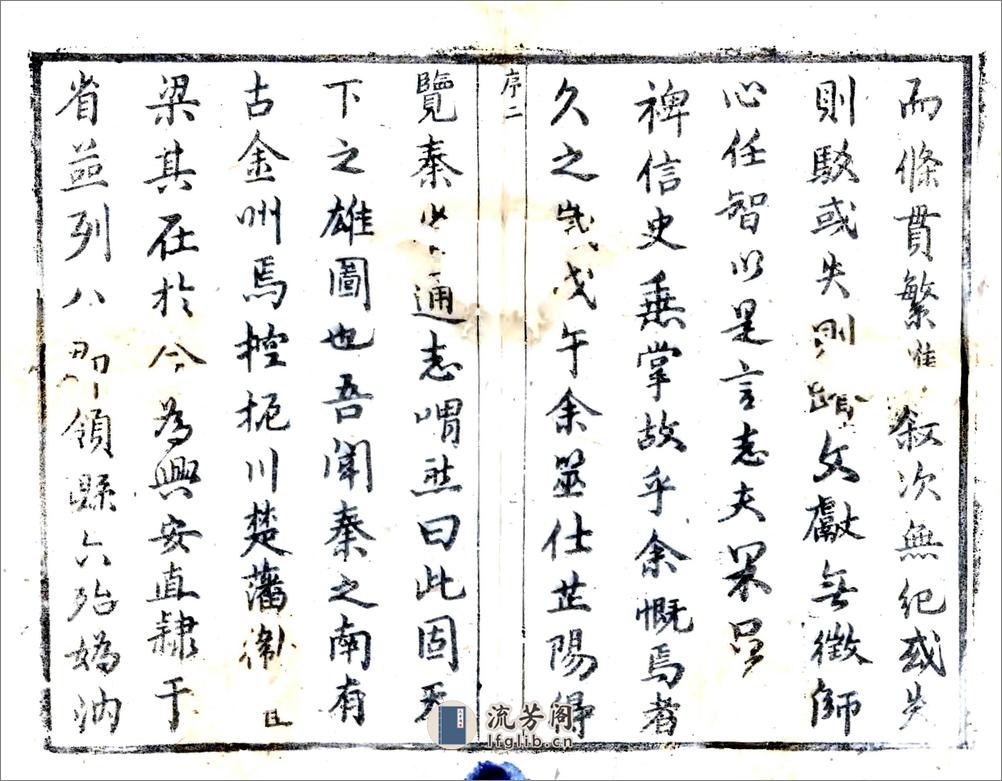 而條貫繁惟叙次無紀或失
則駁或失則文獻無徵師
心任智以是言志夫果足
裨信史垂掌故乎余慨焉者
久之歲戊午余筮仕芷陽得
序二
覽秦通志喟然曰此固天
下之雄圖也吾聞秦之南有
古金州焉控扼川楚藩衛
梁其在於今為興安直隸于
省並列八郡領縣六殆媯汭
流芳阁
lfglib.cn